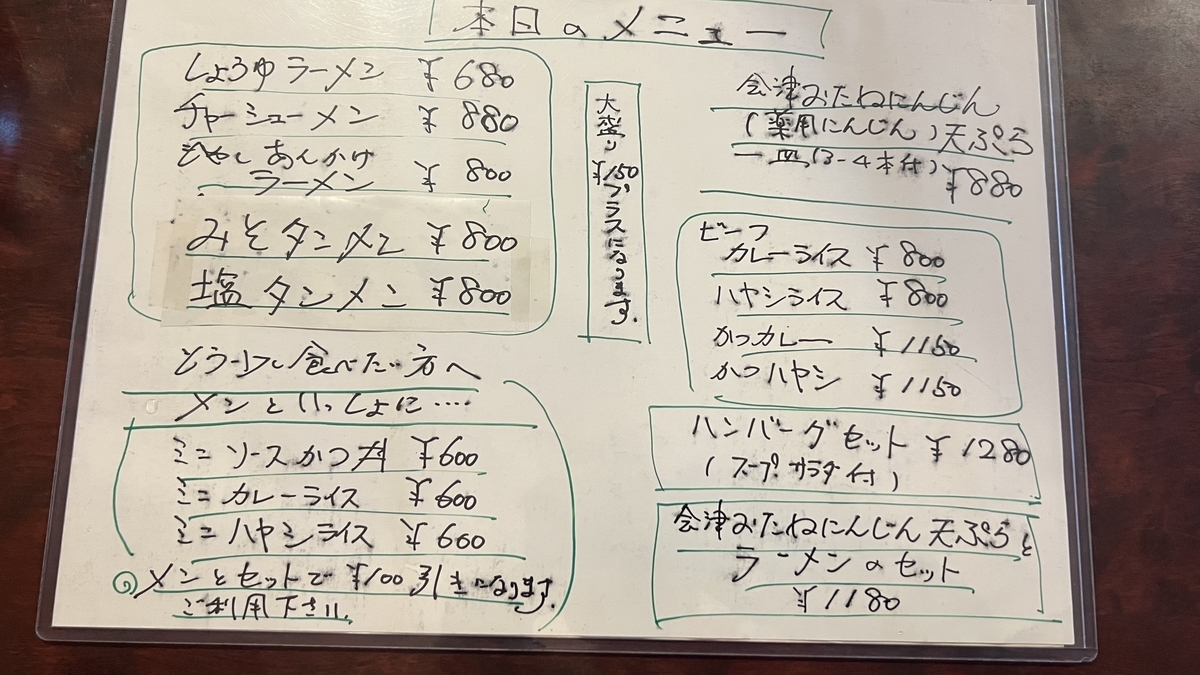 本日のメニュー
しょうゆラーメン ¥680
チャーシューメン ¥880
ひやしあんかけ
ラーメン ¥800
みそタンメン ¥800
塩タンメン ¥800
大盛り¥150プラスになります。
会津おたねにんじん
(薬用にんじん)天ぷら
一皿(3-4本付)
¥880
ビーフ
カレーライス ¥800
ハヤシライス ¥800
かつカレー ¥1150
かつハヤシ ¥1150
ハンバーグセット ¥1280
(スープサラダ付)
会津おたねにんじん天ぷらと
ラーメンのセット
¥1180
食べたい方へ
メンといっしょに‥‥
ミニソースかつ丼 ¥600
ミニカレーライス ¥600
ミニハヤシライス ¥600
メンとセットで¥100引きになります。
ご利用下さい。